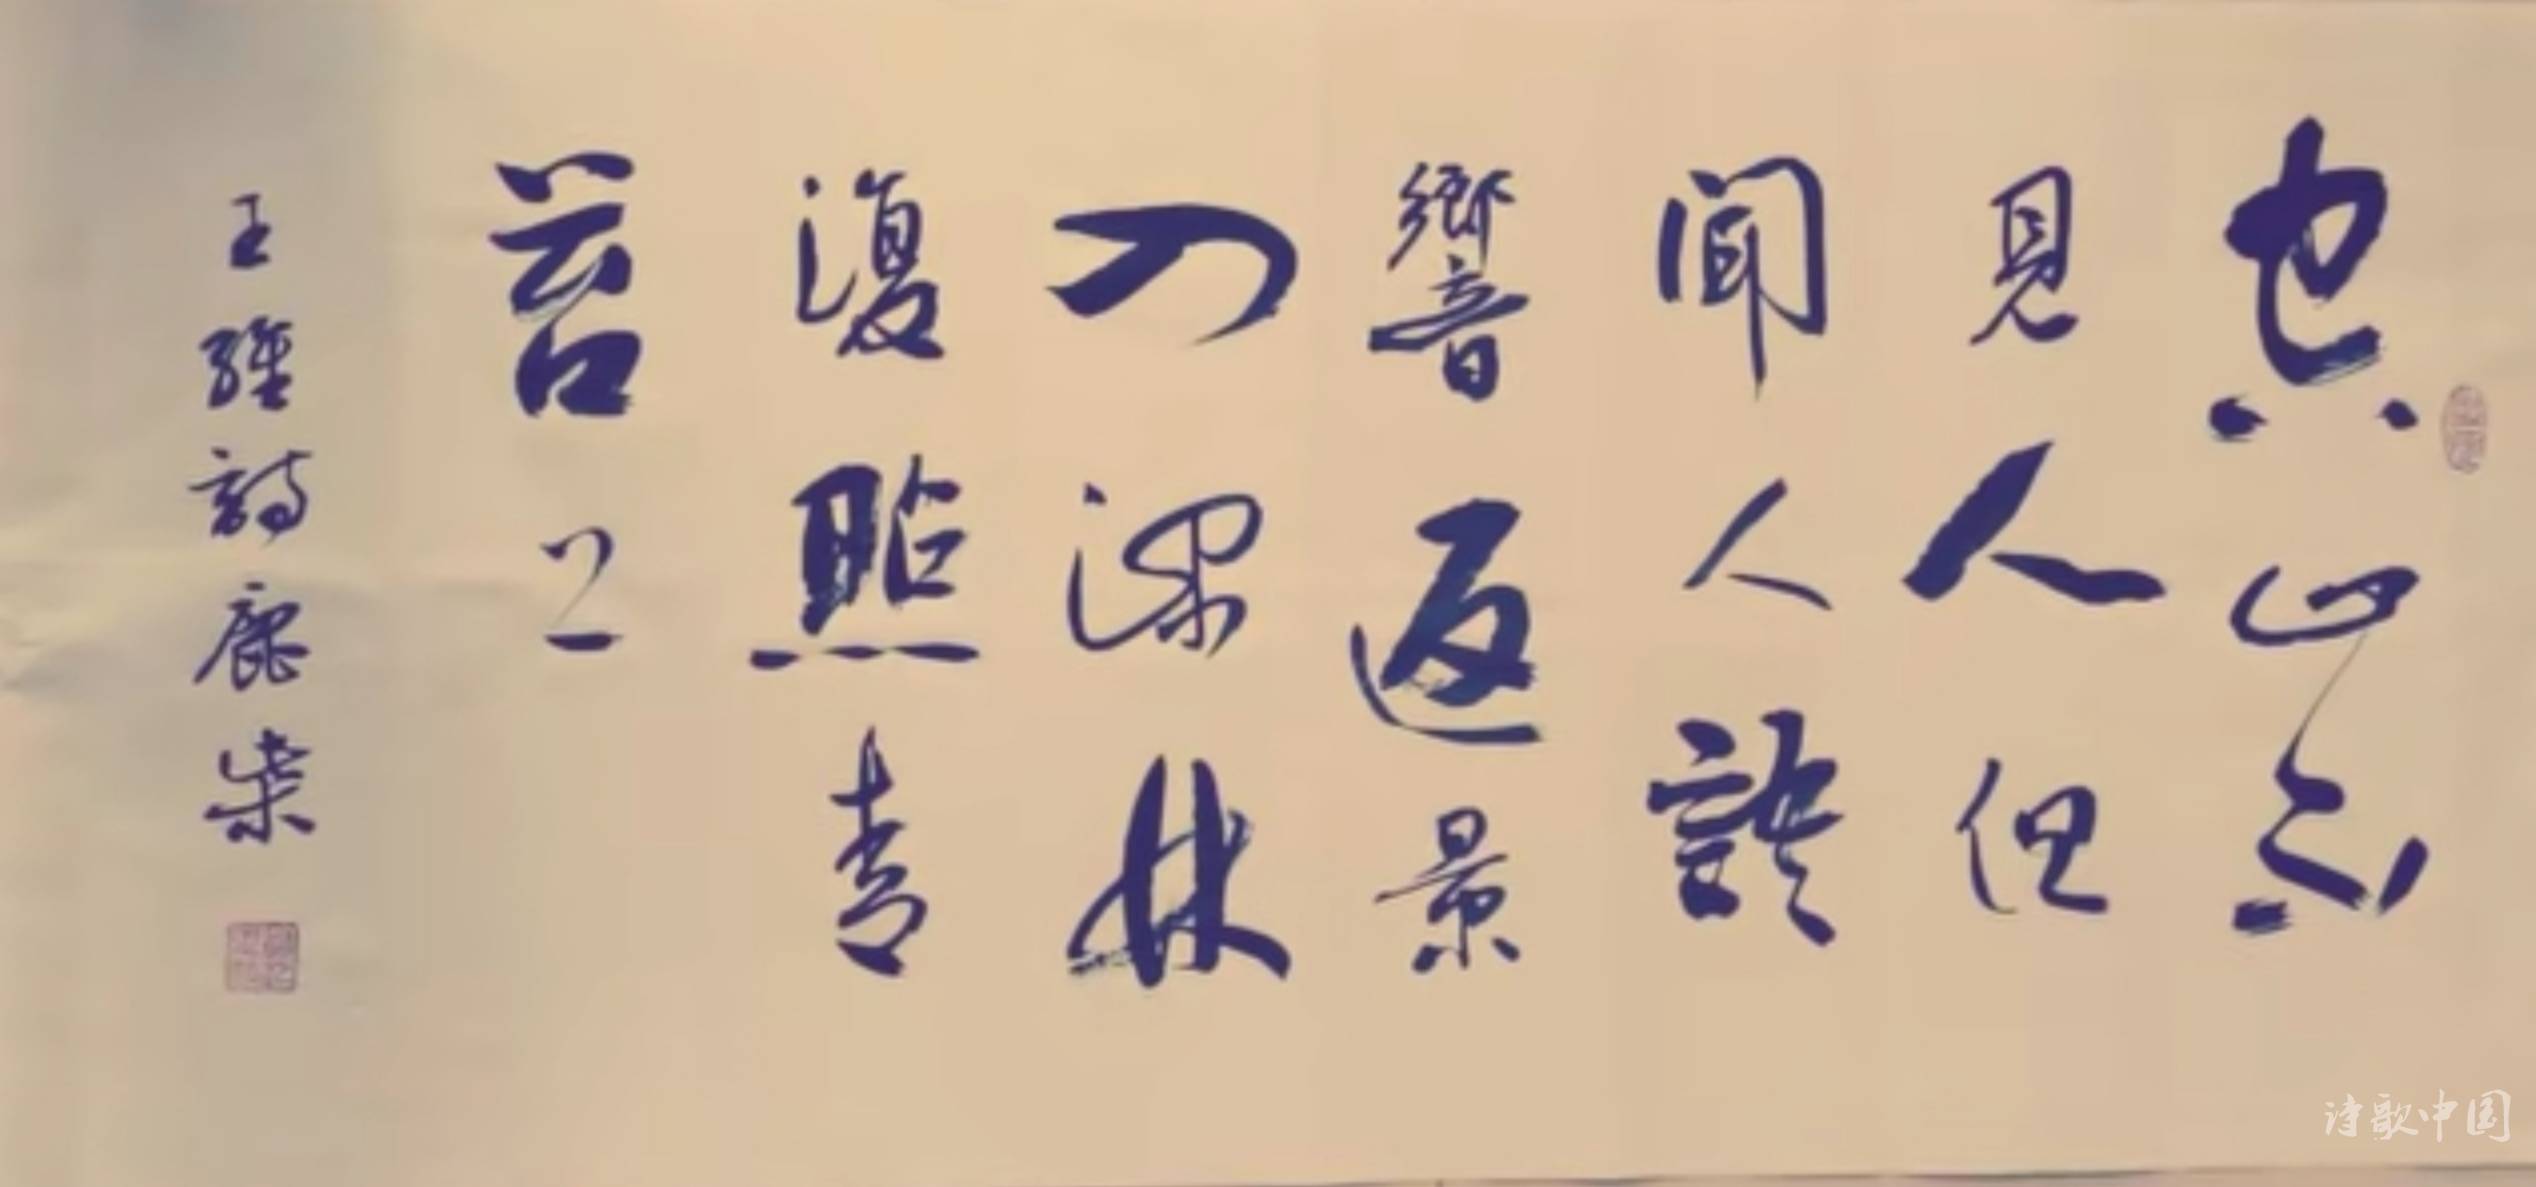 空山不
見人但
聞人語
響返景
入深林
復照青
苔上
王維詩鹿柴
诗歌中国